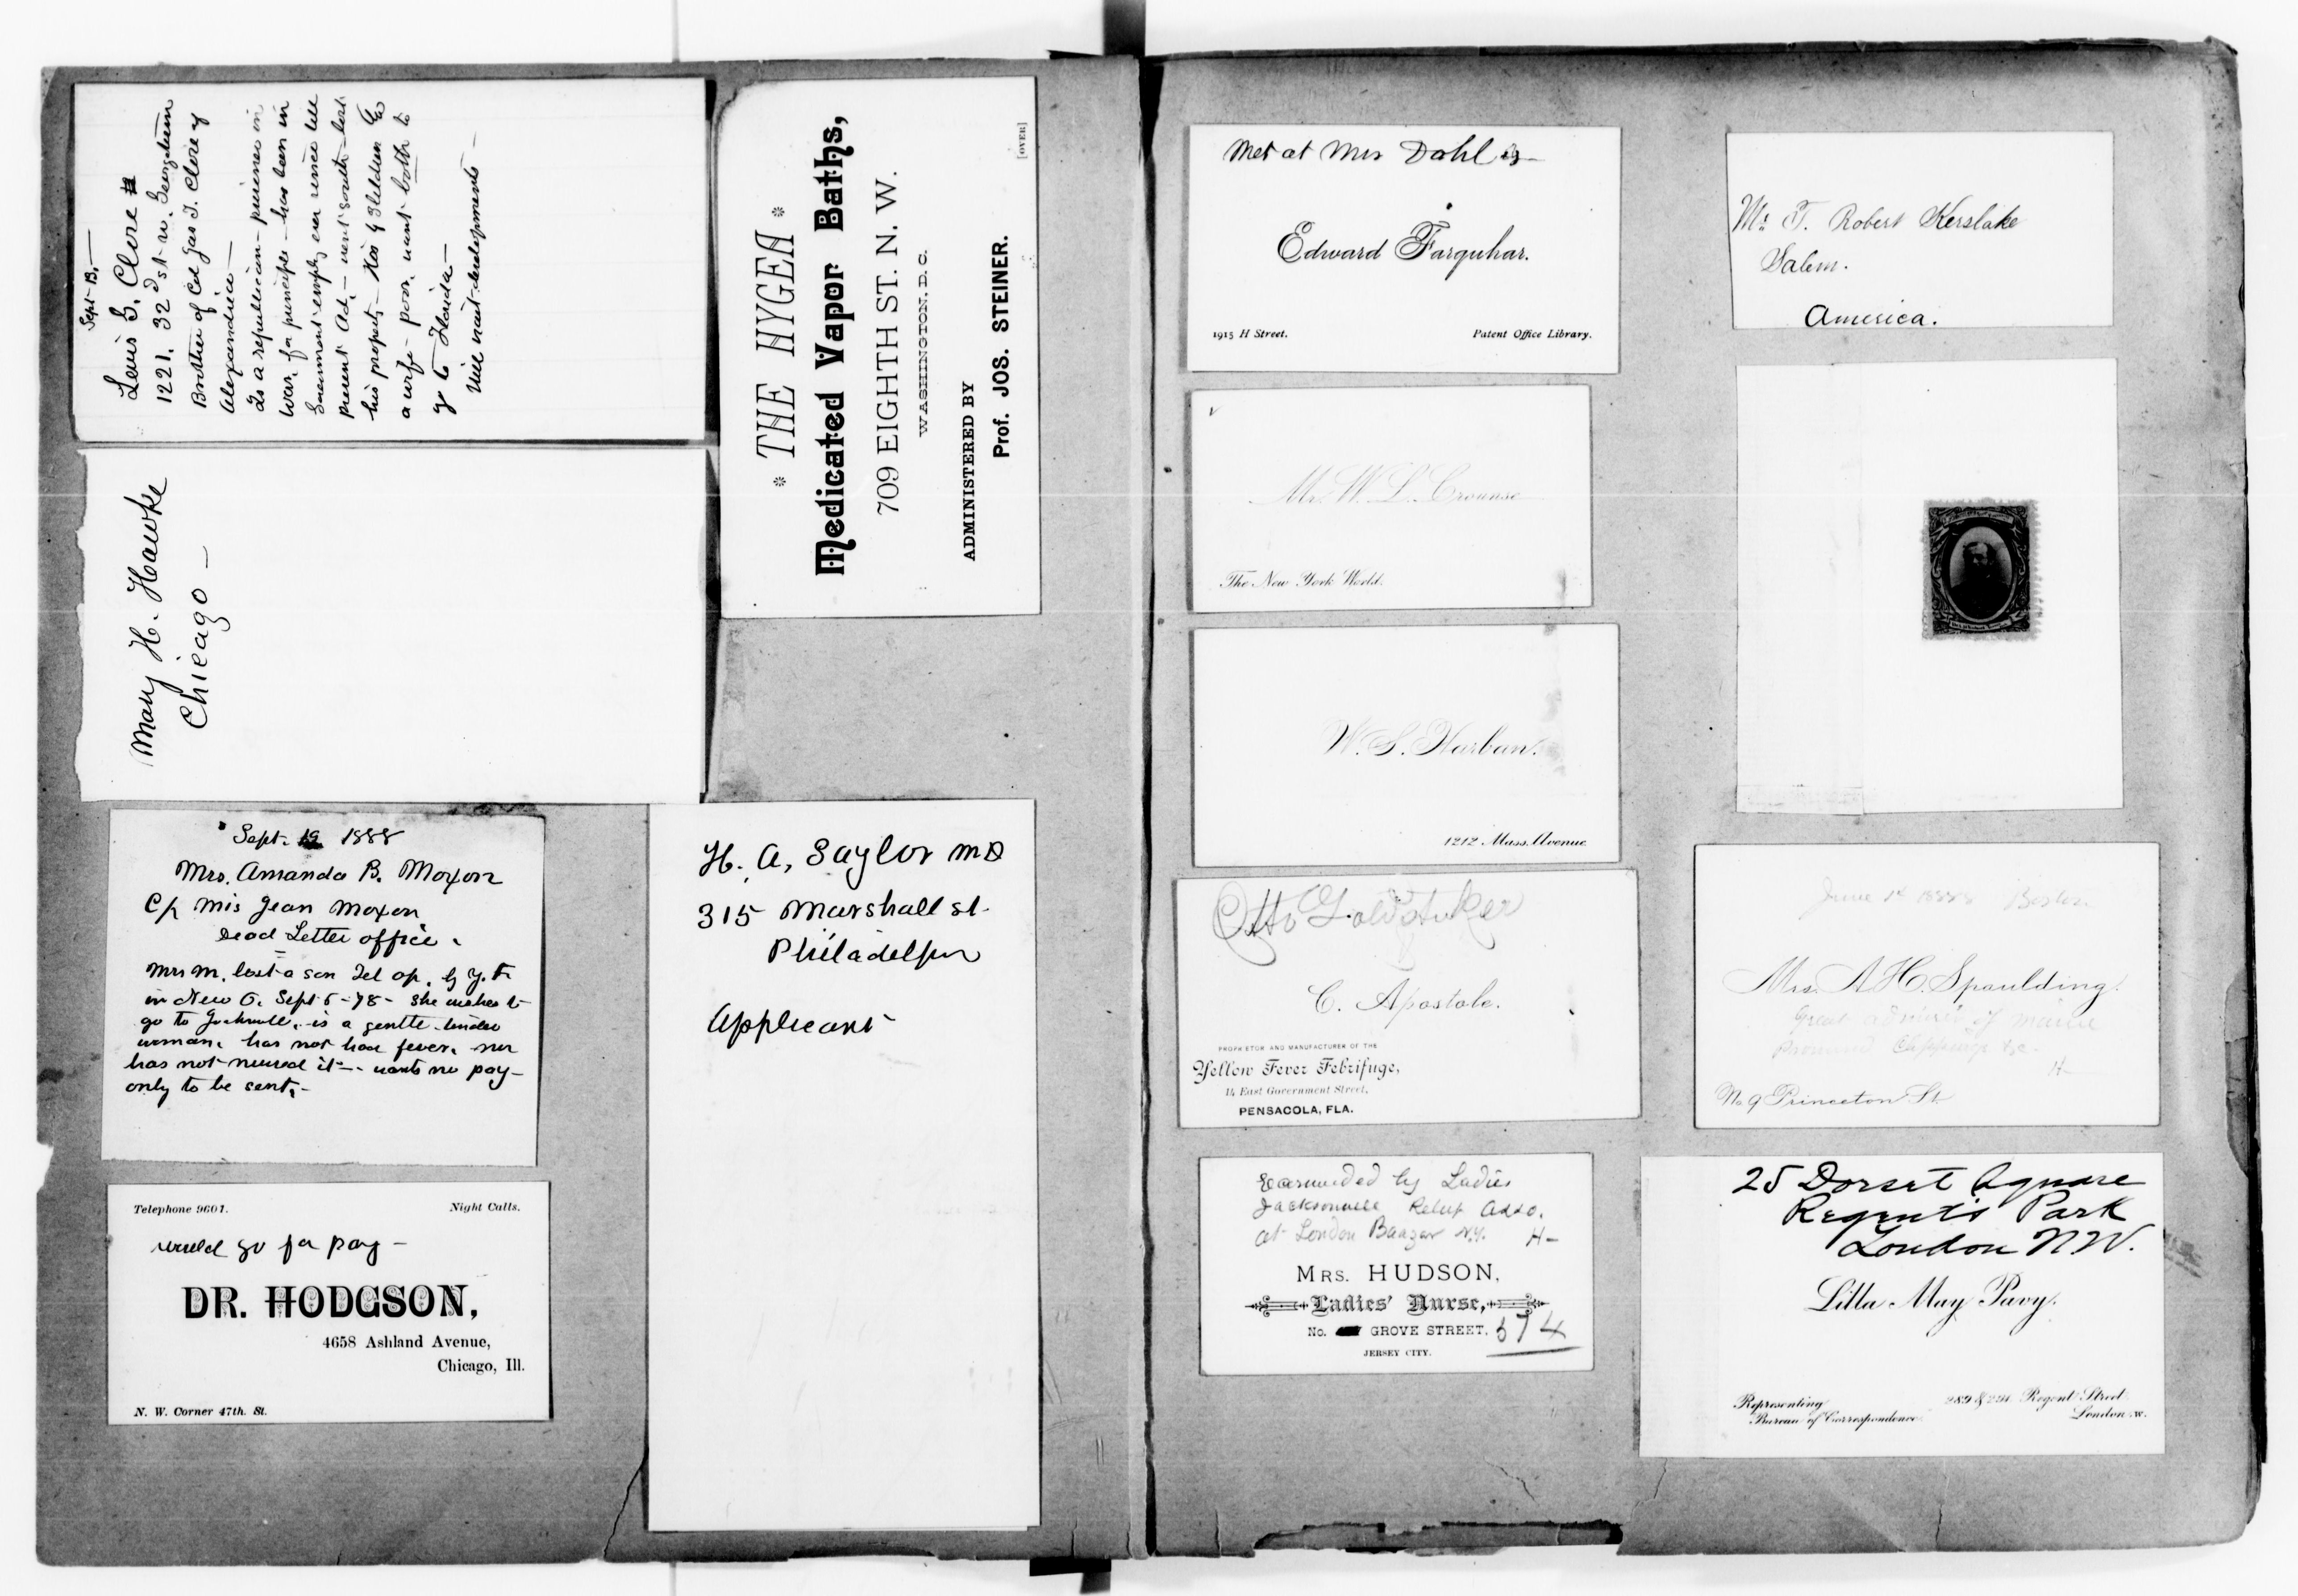 Sept 13,—
Lewis S. Clore
1221. 32d st n. w. Georgetown
Brother of Col Jas T. Clore of
Alexandria—
Is a republican - prisoner in
war, for principle - has been in
Government employ ever since till
present Ad, - went south - lost
his property - Has 4 children &
a wife - poor, want both to
go to Florida—
Will wait developments—
Mary H. Hawke
Chicago—
* THE HYGEA *
Medicated Vapor Baths,
709 EIGHTH ST. N. W.
WASHINGTON, D. C.
ADMINISTERED BY
Prof. JOS. STEINER.
[OVER]
Sept. 19 1888
Mrs. Amanda B. Moxon
C/o Miss Jean Moxon
Dead Letter office.
Mrs M. lost a son Tel op. by Y. F.
in New O. Sept 5 - 78 - She wishes to
go to Jacksonville, is a gentle tender
woman, has not had fever, nor
has not nursed it - wants no pay -
only to be sent, -
Telephone 9601. Night Calls.
would go for pay -
DR. HODGSON,
4658 Ashland Avenue,
Chicago, Ill.
N. W. Corner 47th. St.
H. A. Saylor MD
315 Marshall st.
Philadelphia
Applicant
Met at Mrs Dahlg-
Edward Farquhar.
1915 H Street. Patent Office Library.
Mr. W. L. Crounse
The New York World.
W. S. Harban.
1212 Mass. Avenue
Otto Goldstucker
C. Apostole.
PROPRIETOR AND MANUFACTURER OF THE
Yellow Fever Febrifuge,
14 East Government Street,
PENSACOLA, FLA.
by Ladies
Jacksonville Relief Asso.
at London Bazaar N.Y. H-
MRS. HUDSON,
Ladies' Nurse,
No. GROVE STREET, 574
JERSEY CITY.
Mr. T. Robert Kerslake
Salem.
America.
June 1st 1888 Boston
Mrs. A H. Spaulding.
Great admirer of
Clippings &c -
H-
No 9 Princeton St.
25 Dorset Square
Regents Park
London N.W.
Lilla May Pavy.
Representing
Bureau of Correspondence
289 & 291 Regent Street
London w.